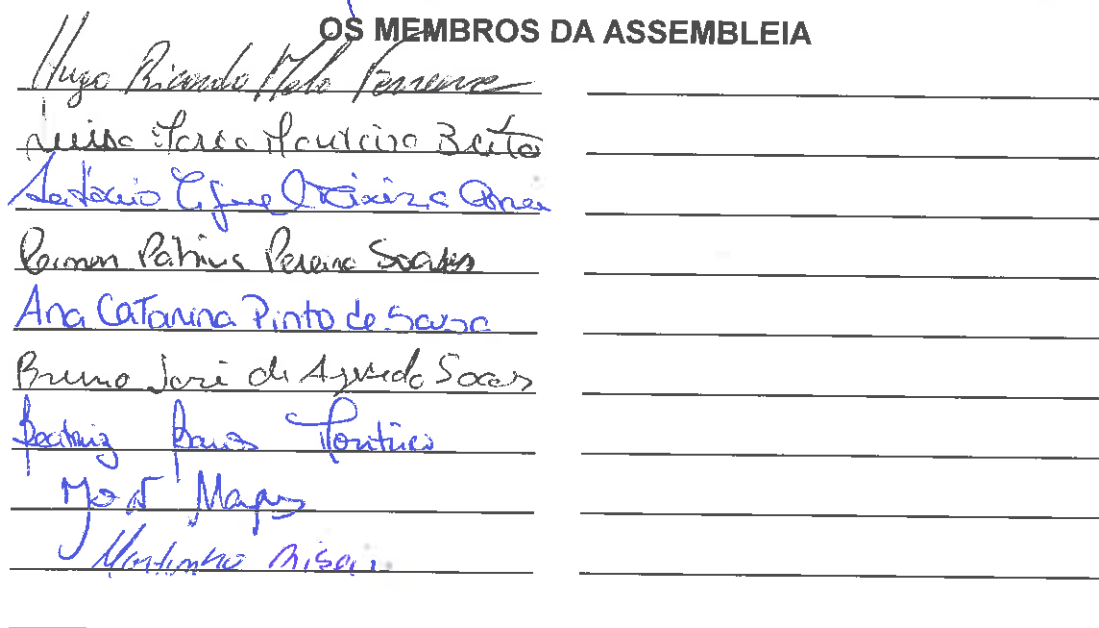 OS MEMBROS DA ASSEMBLEIA
Hugo Ricardo Melo Ferreira
Luisa Maria Monteiro Brito
António Teixeira
Carmen Patrícia Pereira Soares
Ana Catarina Pinto de Sousa
Bruno José de Azevedo Soares
Beatriz Barros Monteiro
Magas
Martinho